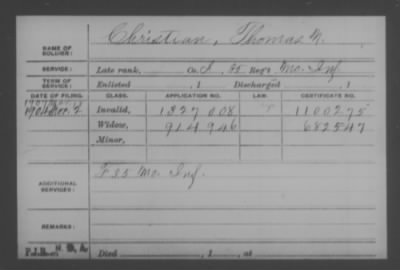 Christian, Thomas M.
NAME OF SOLDIER:
SERVICE: Late rank, Co. I, 25 Reg't Mo. Inf
TERM OF SERVICE: Enlisted , 1 Discharged , 1
DATE OF FILING. CLASS. APPLICATION NO. LAW. CERTIFICATE NO.
1904 Invalid, 1327008 1100275
Widow, 914946 682547
Minor,
ADDITIONAL SERVICES: F 25 Mo. Inf.
REMARKS:
Died , 1 , at